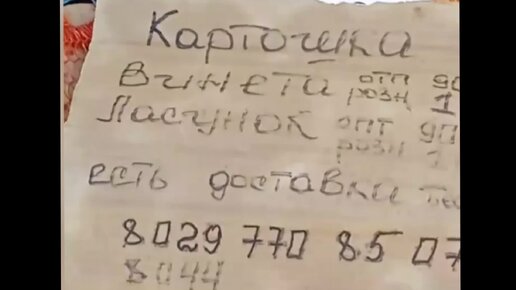 Карточка
Винета опт 90
розн 1
Ласунок опт 90
розн 1
есть доставки
8029 770 85 07
8044